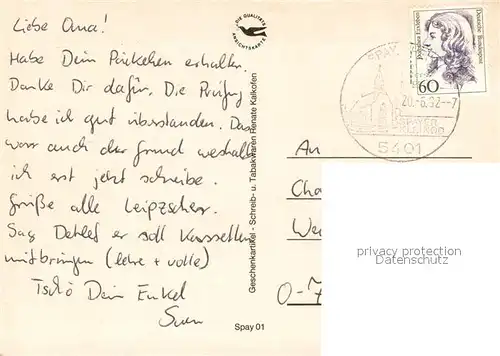 Liebe Oma!
Habe Dein Päckchen erhalten.
Danke Dir dafür. Die Prüfung
habe ich gut überstanden. Das
war auch der Grund weshalb
ich erst jetzt schreibe.
Grüße alle Leipziger.
Sag Detlef er soll Kassetten
mitbringen (leere + volle)
Tschö Dein Enkel
Sven
DIE QUALITÄTS
ANSICHTSKARTE
Geschenkartikel - Schreib- u. Tabakwaren Renate Kalkofen
Spay 01
Dorothea Erxleben
Deutsche Bundespost
60
SPAY
20.-6.92--7
5401
An
O-7
privacy protection